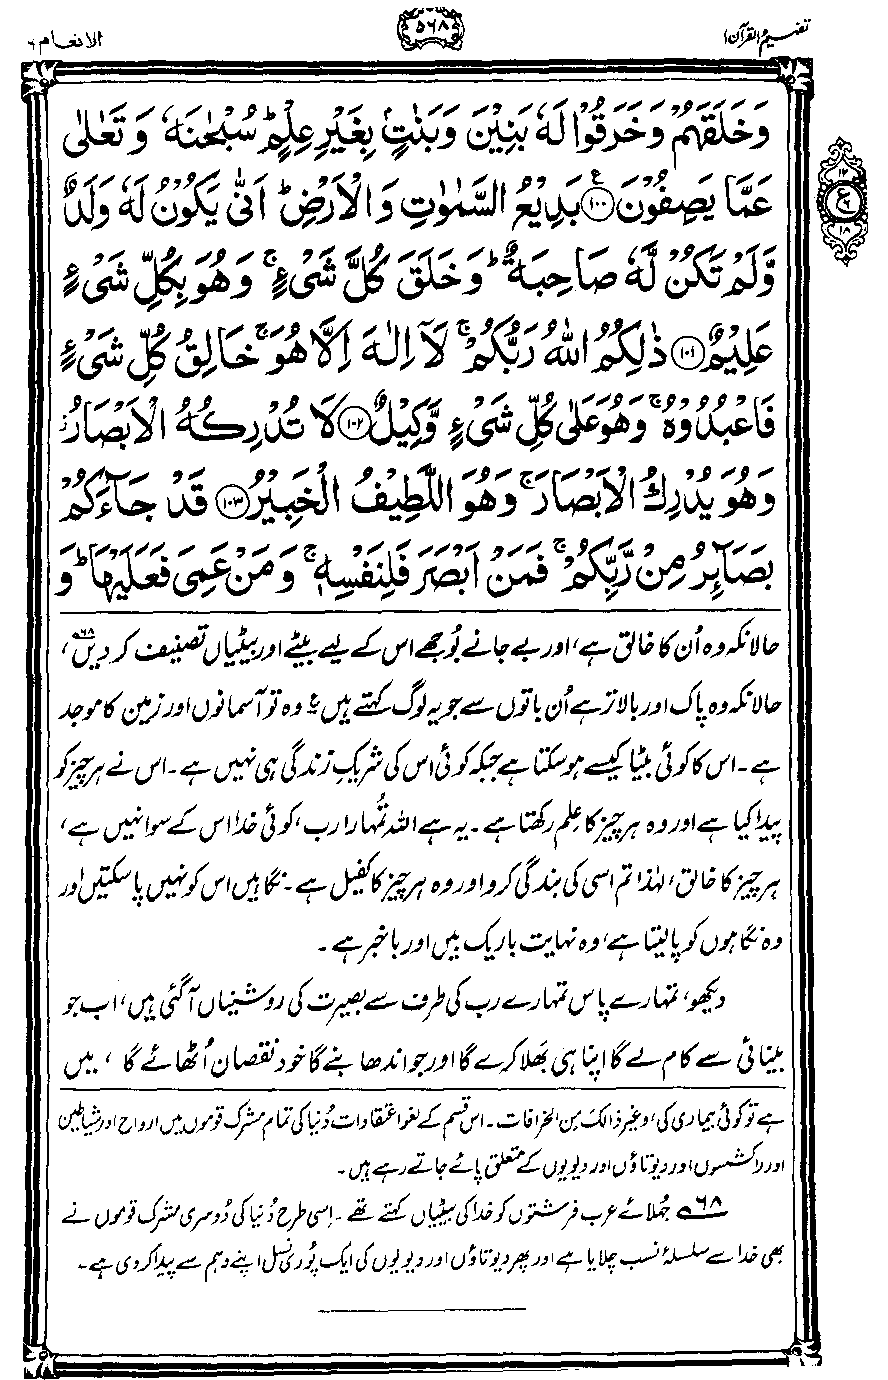 تفہیم القرآن ۱
۵۶۸
الانعام ۶
وَخَلَقَهُمْ وَخَرَقُوْا لَهٗ بَنِيْنَ وَبَنٰتٍۭ بِغَيْرِ عِلْمٍ ؕ سُبْحٰنَهٗ وَ تَعٰلٰى
عَمَّا يَصِفُوْنَ ﴿۱۰۰﴾ ع بَدِيْعُ السَّمٰوٰتِ وَ الْاَرْضِ ؕ اَنّٰى يَكُوْنُ لَهٗ وَلَدٌ
وَّلَمْ تَكُنْ لَّهٗ صَاحِبَةٌ ؕ وَ خَلَقَ كُلَّ شَيْءٍ ۚ وَ هُوَ بِكُلِّ شَيْءٍ
عَلِيْمٌ ﴿۱۰۱﴾ ذٰلِكُمُ اللّٰهُ رَبُّكُمْ ۚ لَاۤ اِلٰهَ اِلَّا هُوَ ۚ خَالِقُ كُلِّ شَيْءٍ
فَاعْبُدُوْهُ ۚ وَهُوَ عَلٰى كُلِّ شَيْءٍ وَّكِيْلٌ ﴿۱۰۲﴾ لَا تُدْرِكُهُ الْاَبْصَارُ ؗ
وَ هُوَ يُدْرِكُ الْاَبْصَارَ ۚ وَهُوَ اللَّطِيْفُ الْخَبِيْرُ ﴿۱۰۳﴾ قَدْ جَآءَكُمْ
بَصَآئِرُ مِنْ رَّبِّكُمْ ۚ فَمَنْ اَبْصَرَ فَلِنَفْسِهٖ ۚ وَ مَنْ عَمِيَ فَعَلَيْهَا ؕ وَ
۱۲
ع
۱۸
حالانکہ وہ اُن کا خالق ہے، اور بے جانے بُوجھے اس کے لیے بیٹے اور بیٹیاں تصنیف کر دیں ۶۸ ،
حالانکہ وہ پاک اور بالاتر ہے اُن باتوں سے جو یہ لوگ کہتے ہیں ع وہ تو آسمانوں اور زمین کا موجد
ہے۔ اس کا کوئی بیٹا کیسے ہو سکتا ہے جبکہ کوئی اس کی شریکِ زندگی ہی نہیں ہے۔ اس نے ہر چیز کو
پیدا کیا ہے اور وہ ہر چیز کا عِلم رکھتا ہے۔ یہ ہے اللہ تُمہارا رب، کوئی خدا اس کے سوا نہیں ہے،
ہر چیز کا خالق، لہٰذا تم اسی کی بندگی کرو اور وہ ہر چیز کا کفیل ہے۔ نگاہیں اس کو نہیں پا سکتیں اور
وہ نگاہوں کو پا لیتا ہے، وہ نہایت باریک بیں اور باخبر ہے۔
دیکھو، تمہارے پاس تمہارے رب کی طرف سے بصیرت کی روشنیاں آگئی ہیں، اب جو
بینائی سے کام لے گا اپنا ہی بَھلا کرے گا اور جو اندھا بنے گا خود نقصان اُٹھائے گا ، میں
ہے تو کوئی بیماری کی، وغیر ذالک مِن الخرافات۔ اس قسم کے لغو اعتقادات دُنیا کی تمام مشرک قوموں میں ارواح اور شیاطین
اور راکشسوں اور دیوتاؤں اور دیویوں کے متعلق پائے جاتے رہے ہیں۔
۶۸ے جُہلائے عرب فرشتوں کو خدا کی بیٹیاں کہتے تھے۔ اِسی طرح دُنیا کی دُوسری مشرک قوموں نے
بھی خدا سے سلسلۂ نسب چلایا ہے اور پھر دیوتاؤں اور دیویوں کی ایک پُوری نسل اپنے وہم سے پیدا کر دی ہے۔